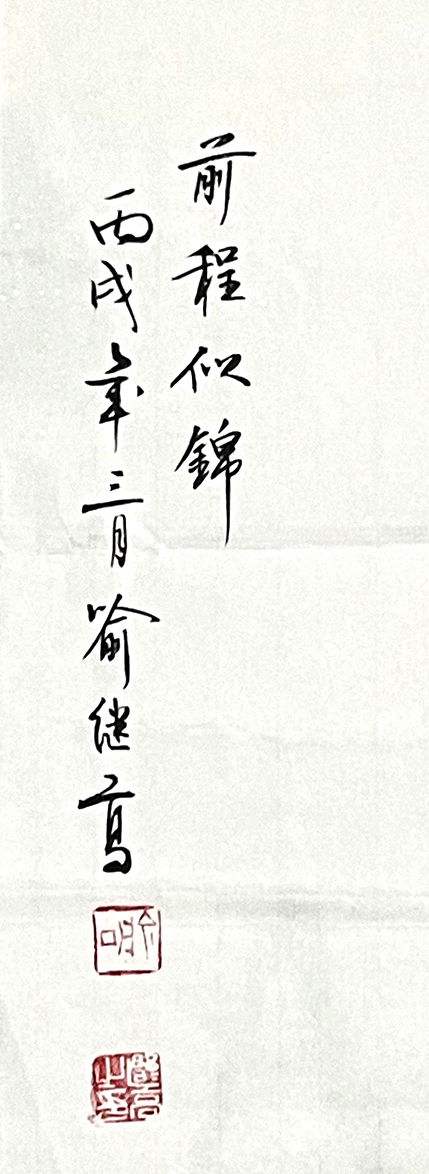 前程似錦
丙戌年三月喻继高